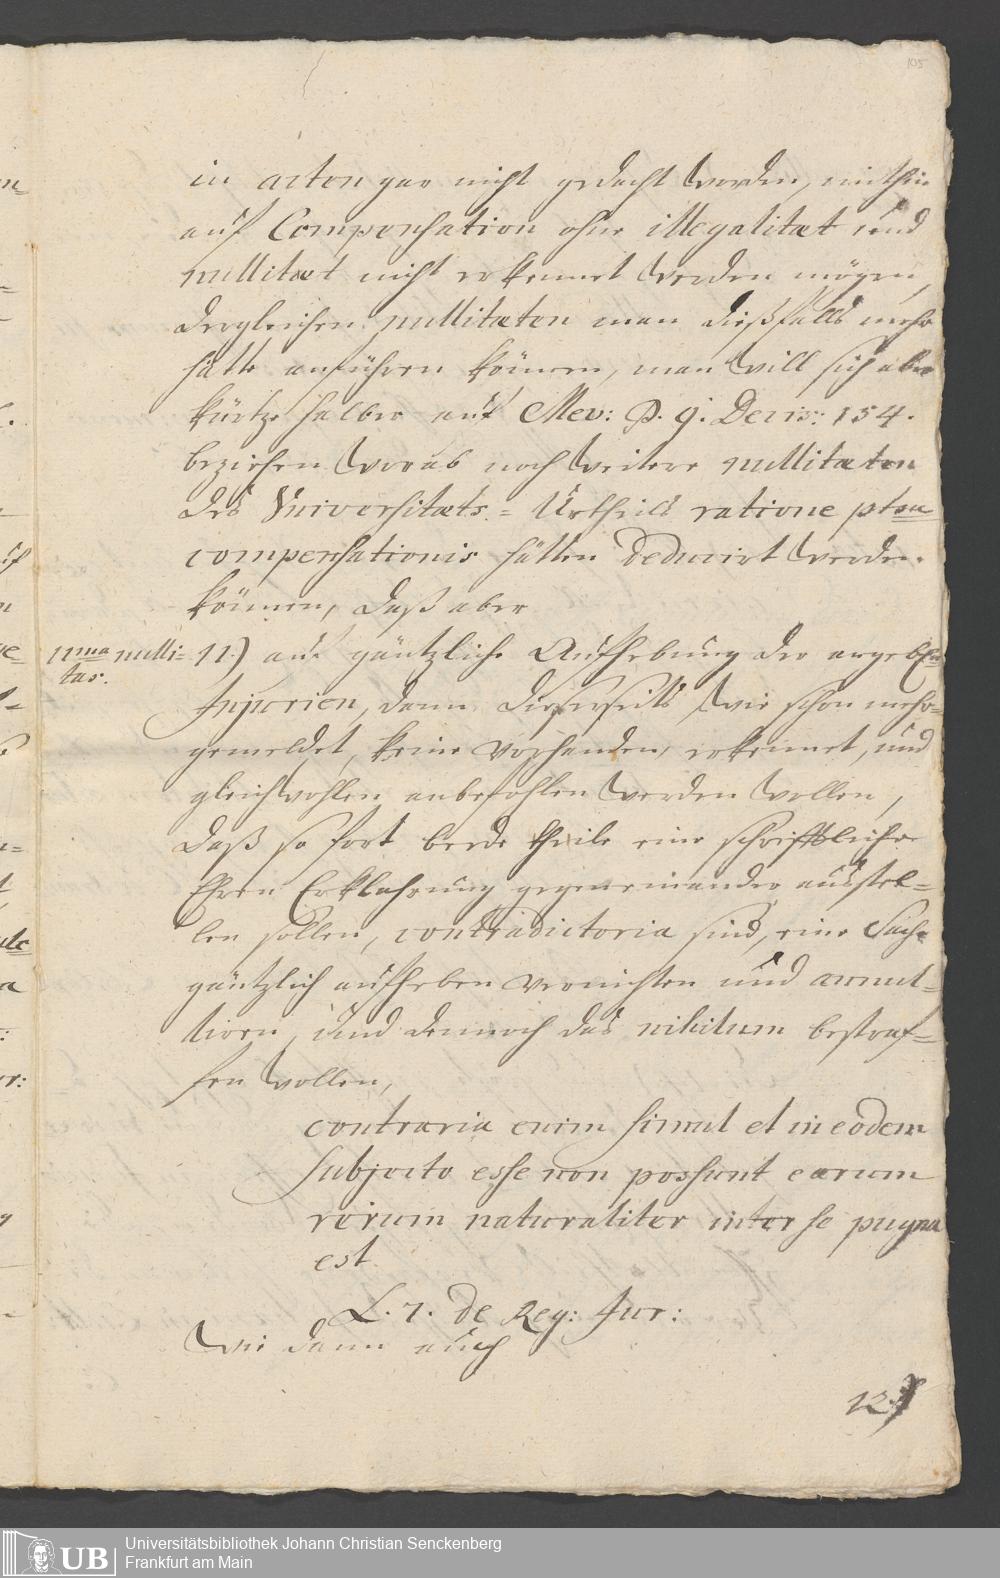 105
in acten gar nicht gedacht worden, mithin
auf Compensation ohne illegalitæt und
nullitæt nicht erkennet werden mögen,
dergleichen nullitæten man dießfalls mehr
hätte anführen können, man will sich aber
kürtze halber auf Mev: P. 9. Decis: 154.
beziehen worab noch weitere nullitæten
des Universitæts-Urtheils ratione ptου
compensationis hätten deducirt werden
können, daß aber
11ma nulli-
tas.
11.) auf gäntzliche Aufhebung der angebl:
Injurien, dann dießerseits wie schon mehr-
gemeldet, keine vorhanden, erkennet, und
gleichwohlen anbefohlen werden wollen,
daß so fort beede theile eine schrifftliche
Ehren Erklährung gegeneinander ausstel-
len sollen, contradictoria sind, eine Sache
gäntzlich aufheben vernichten und annul-
liren, und dennoch das nihilum bestraf-
fen wollen,
contraria enim simul et in eodem
subjecto esse non possunt earum
rerum naturaliter inter se pugna
est
L. 7. de Reg: Jur:
Wie dann auch
12.)
UB
Universitätsbibliothek Johann Christian Senckenberg
Frankfurt am Main